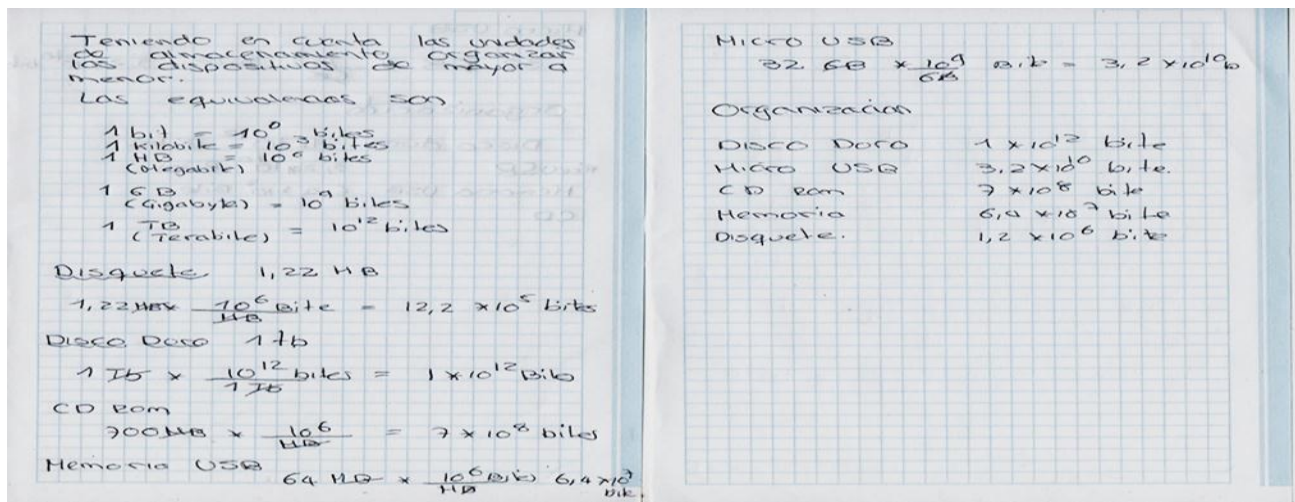 Teniendo en cuenta las unidades
de almacenamiento organizar
los dispositivos de mayor a
menor.
Las equivalencias son
1 bit = 10⁰ bites
1 Kilobite = 10³ bites
1 MB = 10⁶ bites
(Megabite)
1 GB
(Gigabyte) = 10⁹ bites
1 TB
(Terabite) = 10¹² bites
Disquete 1,22 MB
1,22 MB x 10⁶ Bite / MB = 12,2 x 10⁵ bites
Disco Duro 1 Tb
1 Tb x 10¹² bites / 1 Tb = 1 x 10¹² Bite
CD Rom
700 MB x 10⁶ / MB = 7 x 10⁸ bites
Memoria USB
64 MB x 10⁶ Bite / MB 6,4 x 10⁷
bite.
Micro USB
32 GB x 10⁹ / GB Bite = 3,2 x 10¹⁰ b
Organizacion
Disco Duro 1 x 10¹² bite
Micro USB 3,2 x 10¹⁰ bite.
CD Rom 7 x 10⁸ bite
Memoria 6,4 x 10⁷ bite
Disquete. 1,2 x 10⁶ bite